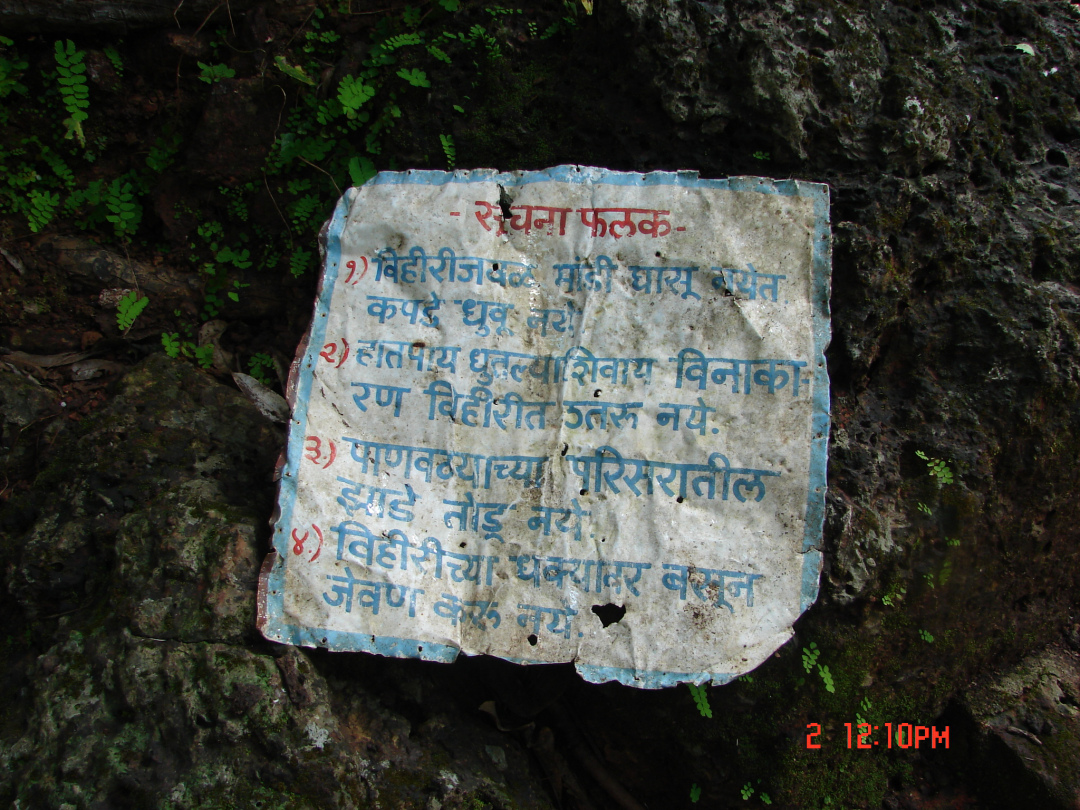 - सूचना फलक -
१) विहीरीजवळ भांडी घासू नयेत.
कपडे धुवू नये.
२) हातपाय धुतल्याशिवाय विनाका-
रण विहीरीत उतरू नये.
३) पाणवठ्याच्या परिसरातील
झाडे तोडू नये.
४) विहीरीच्या धक्यावर बसून
जेवण करू नये.
2 12:10PM